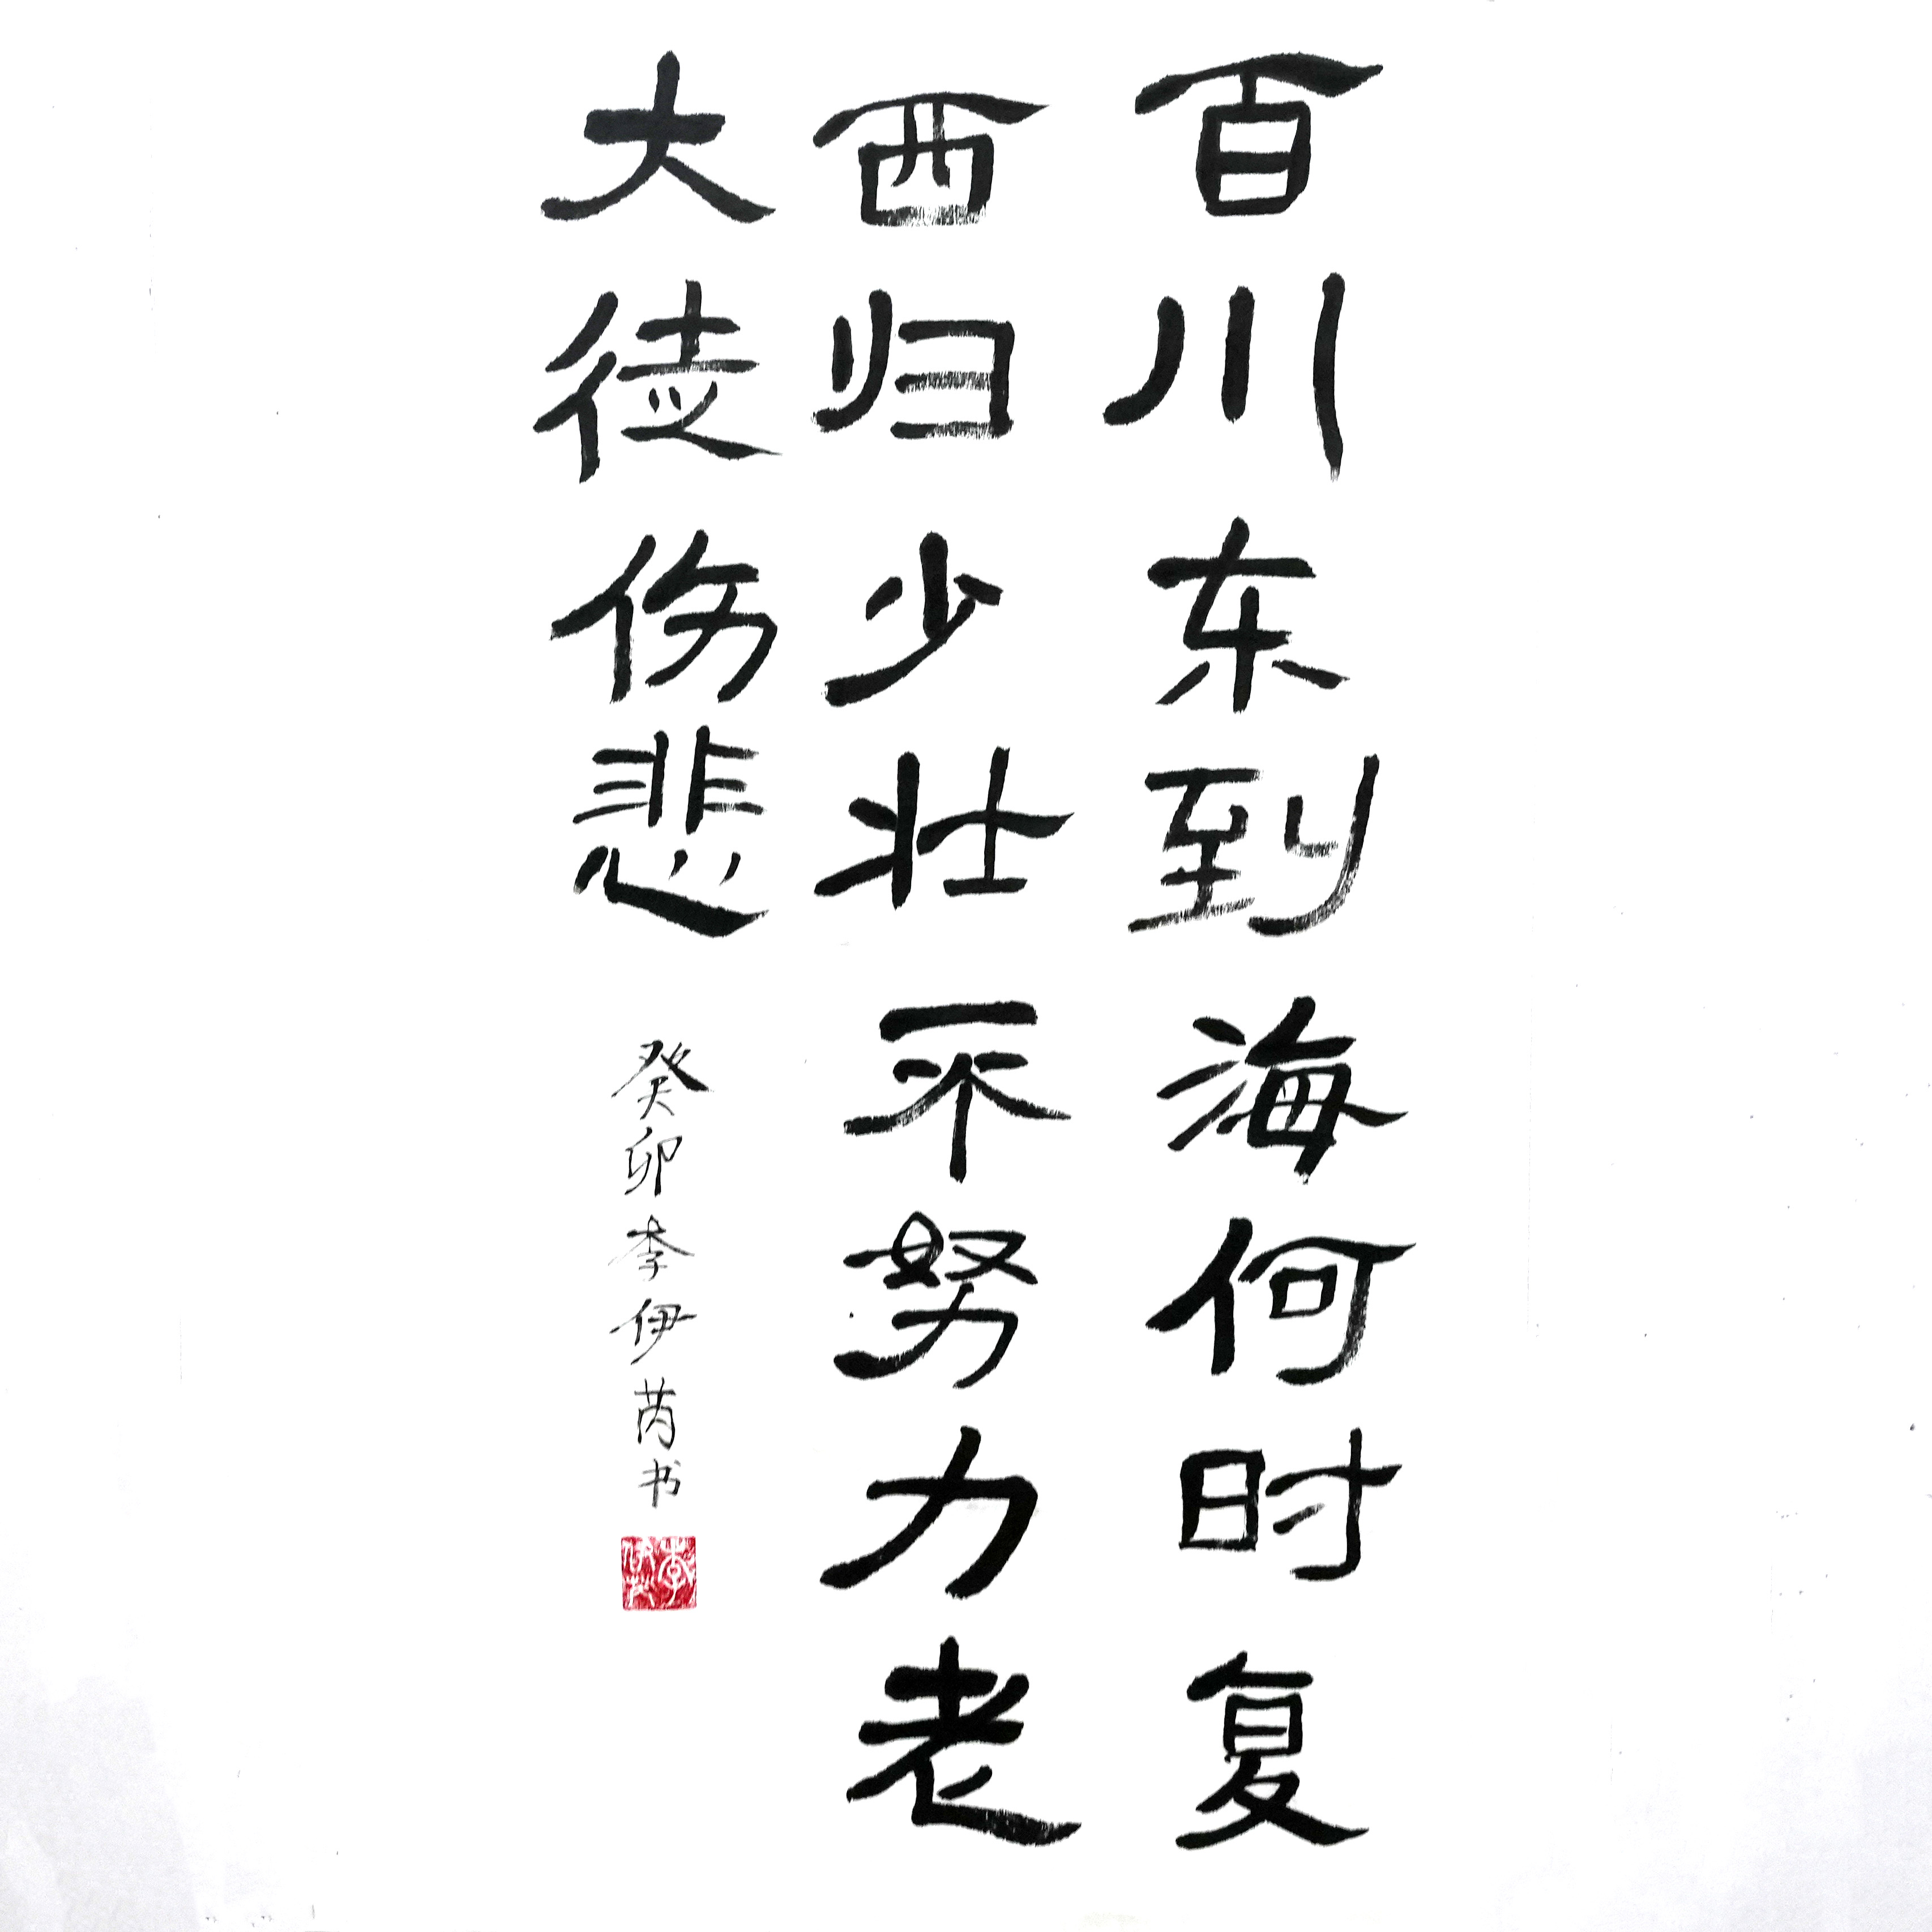 百川东到海何时复
西归少壮不努力老
大徒伤悲
癸卯李伊芮书